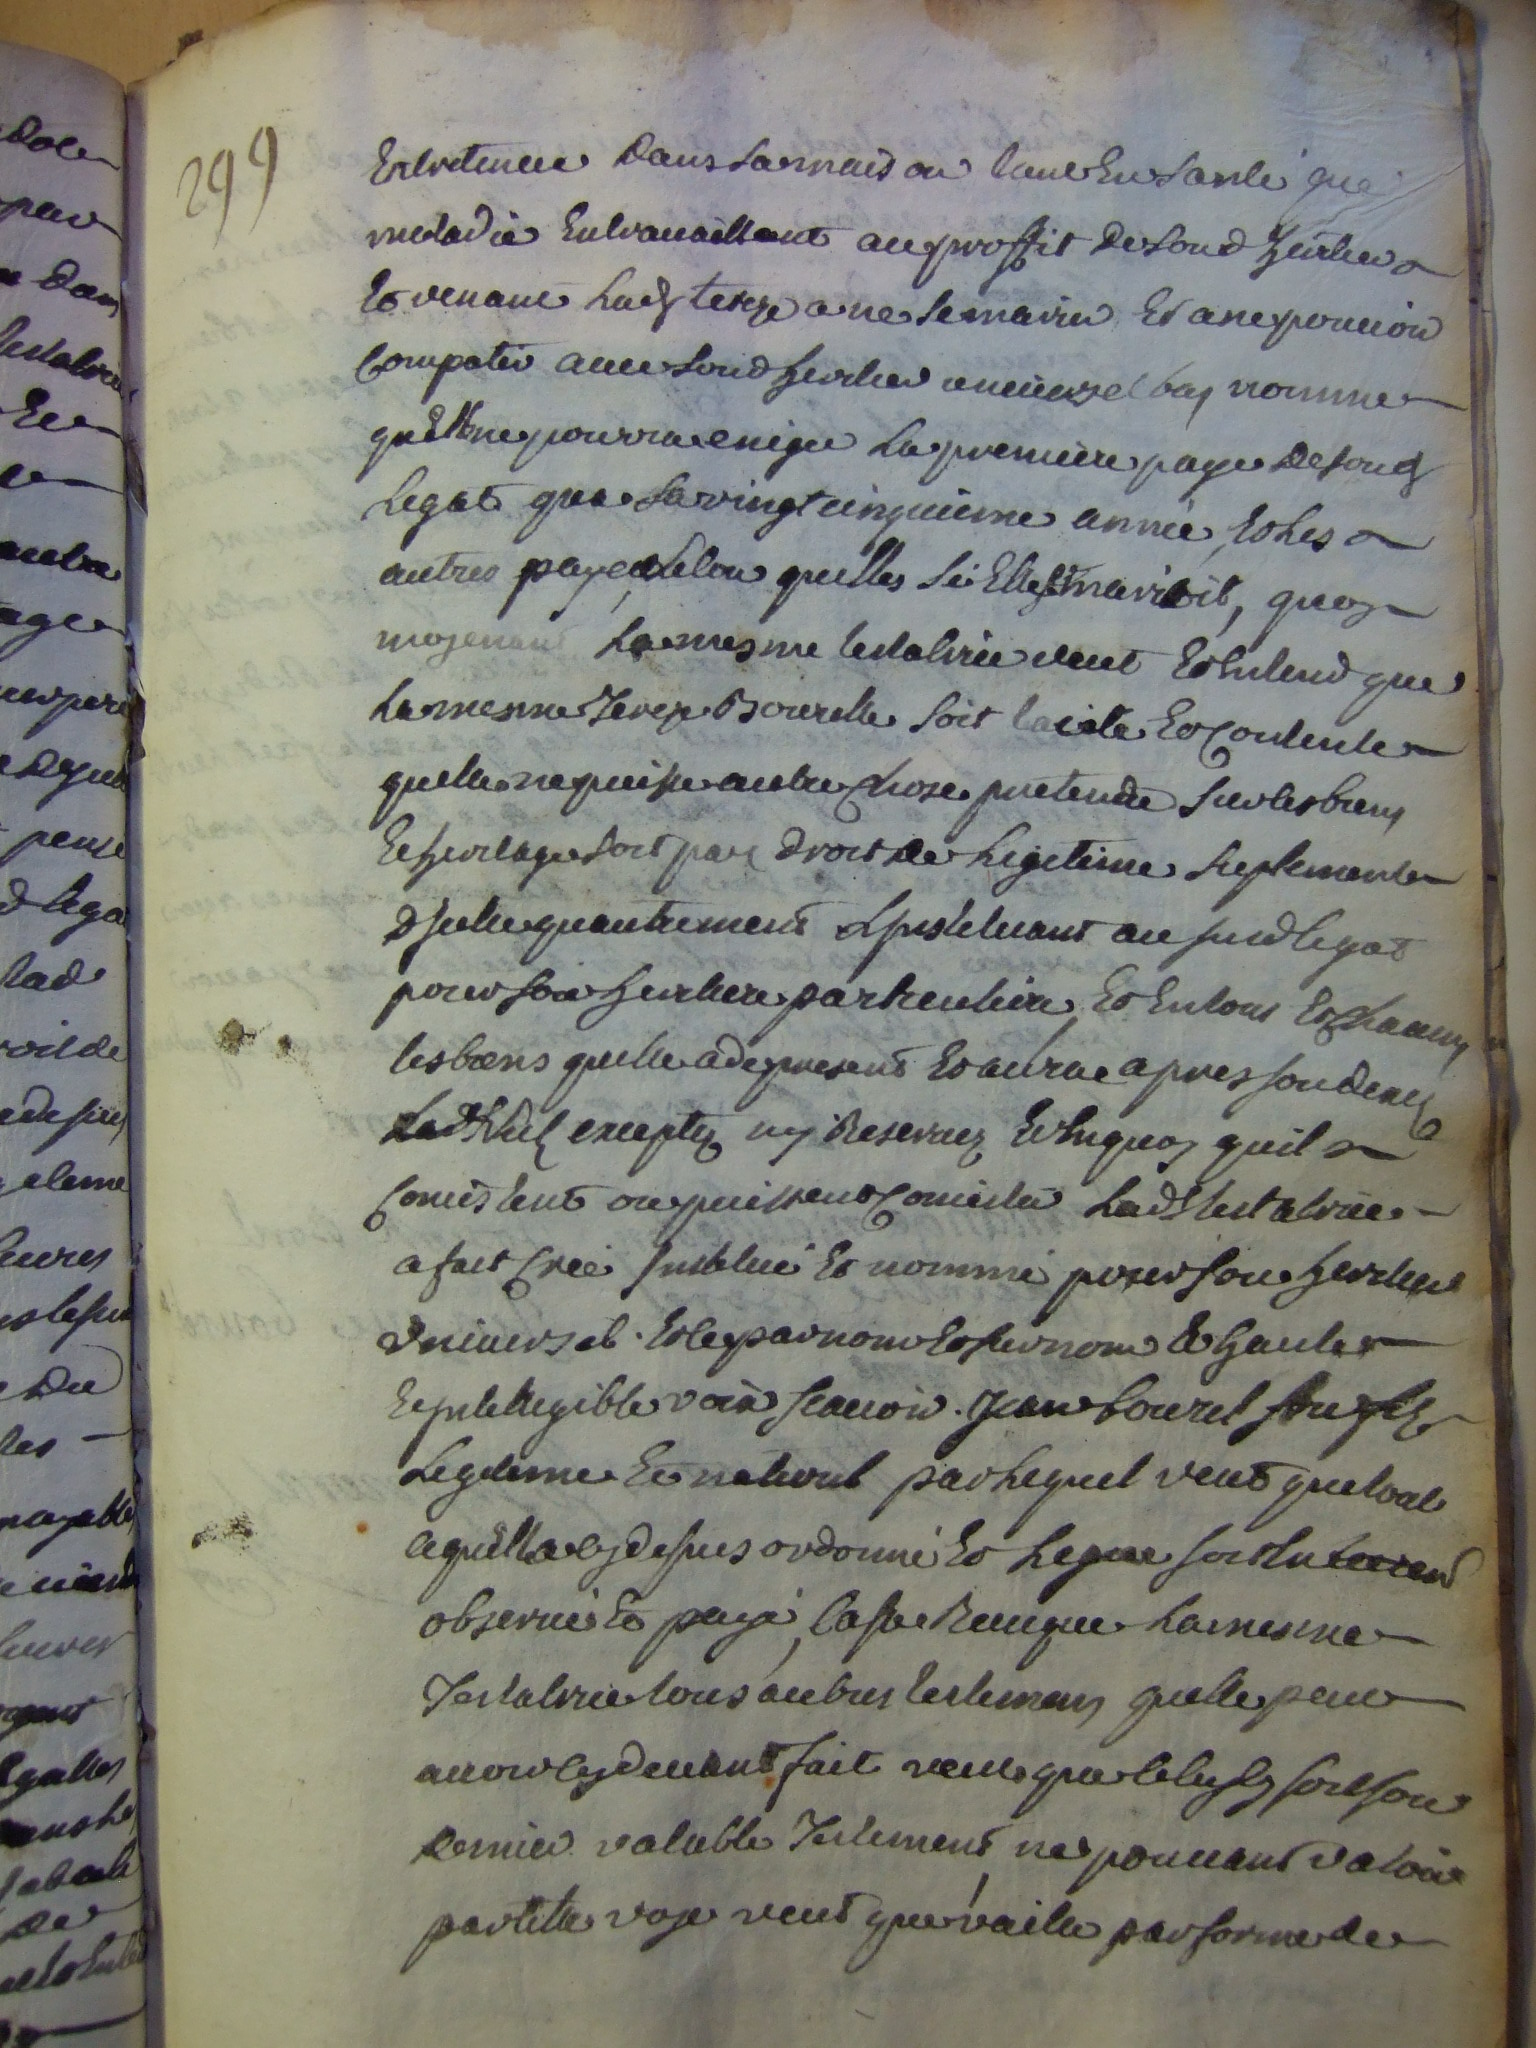 299
Entretenue dans sa maison tant en santé que
maladie en travaillant au proffit de sond heritier
et venant lad tereze a ne se marier et a ne pouvoir
compatir avec sond heritier universel bas nommé
quelle ne pourra exiger la premiere paye de soud
legat qua sa vingt cinquieme année, et les
autres payes, selon quelles si elle se marioit, quoy
moyenant la mesme testatrice veut et entend que
la mesme Tereze Bourelle soit tacite et contente
quelle ne puisse autre chose pretendre sur les biens
et heritage soit par droit de legitime suplement
d jcelle quautrement Linstituant au susd legat
pour son heritiere particuliere, et en tous et chacuns
les biens quelle a de present et aura apres son deces
exceptez ny Reservez et en quoy quil
consistent ou puissent consister lad testatrice
a fait créé institué et nommé pour son heritier
universel et le par nom et surnom et haute
et intelligible voix scavoir. Jean bourel son fils
Legitime et naturel par lequel veut que tout
ce quelle a cy dessus ordonné et legue soit entierement
observé et payé, Casse Revoque la mesme
Testatrice tous autres testemens quelle peut
avoir cy devant fait veut que celuy cy soit son
dernier valable Testement, ne pouvant valoir
par telle voye veut que vaille par forme de